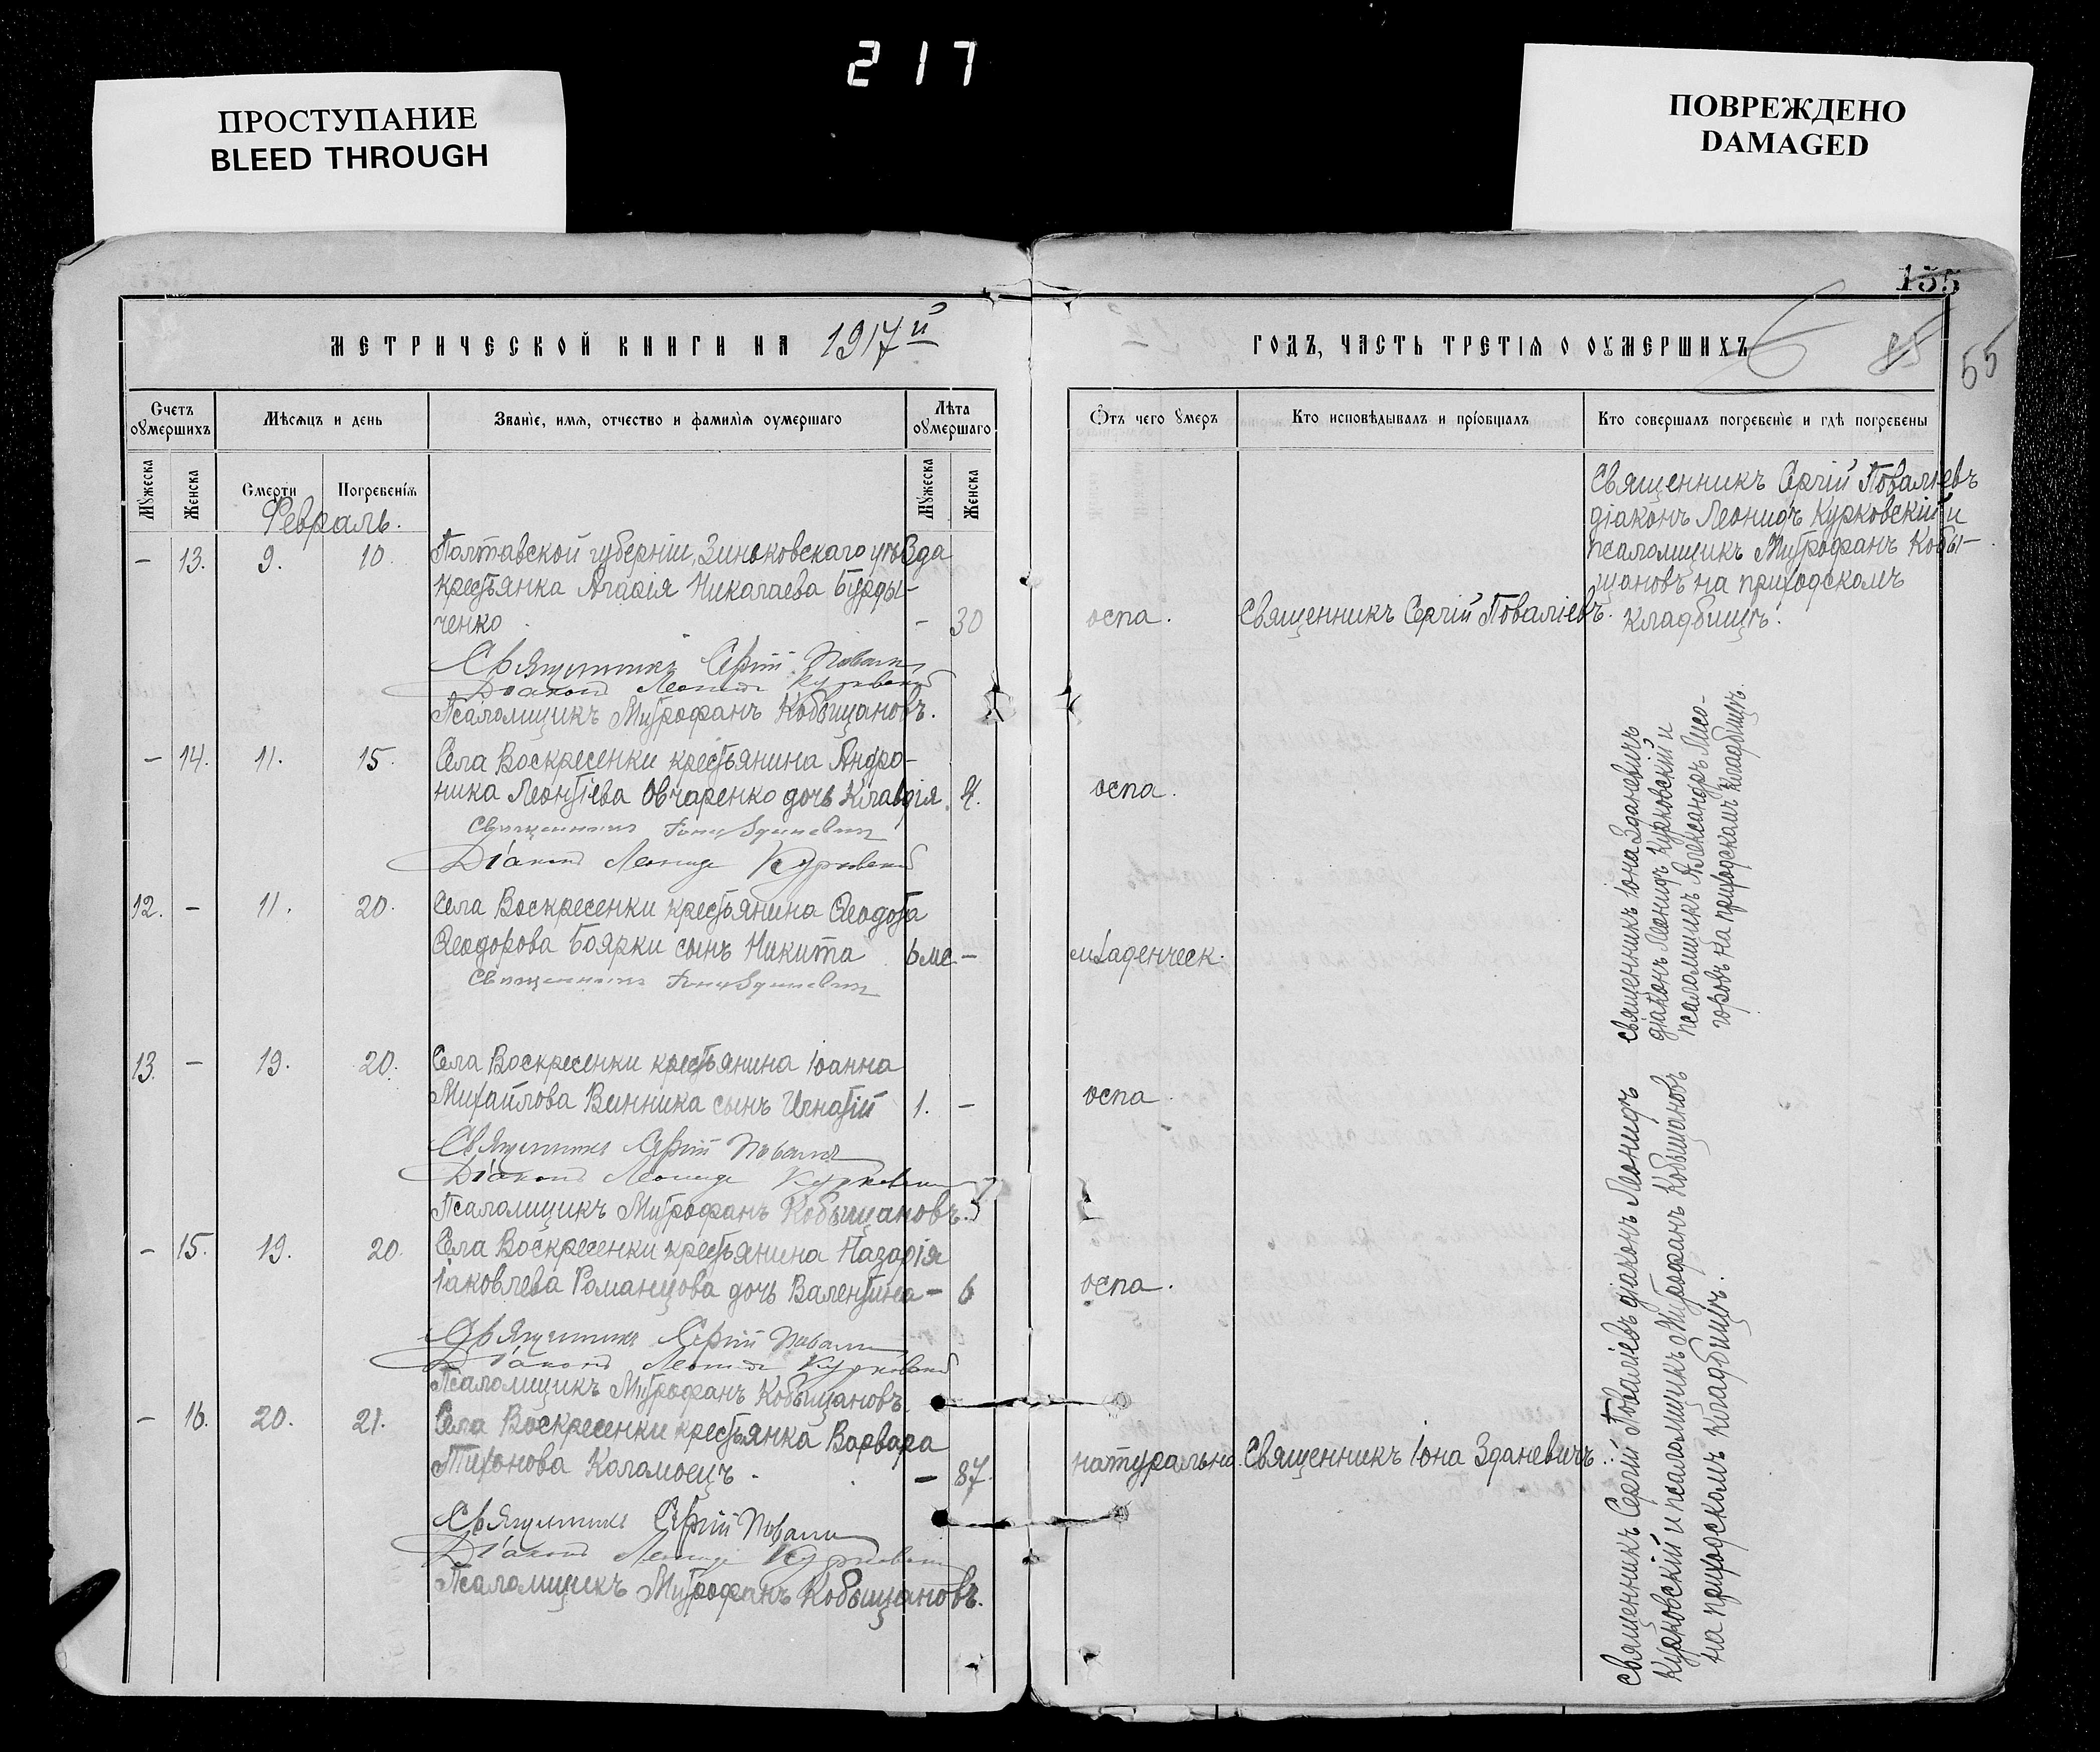 217
ПРОСТУПАНИЕ
BLEED THROUGH
ПОВРЕЖДЕНО
DAMAGED
155
МЕТРИЧЕСКОЙ КНИГИ НА 1917й
Счетъ оумершихъ
Мѣсяцъ и день
Званіе, имя, отчество и фамилія оумершаго
Лѣта оумершаго
Мꙋжеска
Женска
Смерти
Погребенія
Мꙋжеска
Женска
Февраль.
– 13. 9. 10. Полтавской губерніи, Зиньковскаго уѣзда
крестьянка Агафія Николаева Бурды-
ченко – 30
Священникъ Сергій
Діаконъ Леонидъ Курковскій
Псаломщикъ Митрофанъ Кобыщановъ.
– 14. 11. 15. Села Воскресенки крестьянина Андро-
ника Леонтіева Овчаренко дочь Клавдія 4.
Священникъ Іона Зданевичъ
Діаконъ Леонидъ Курковскій
12. – 11. 20. Села Воскресенки крестьянина Ѳеодота
Ѳеодорова Боярки сынъ Никита 6 ме –
Священникъ Іона Зданевичъ
13. – 19. 20. Села Воскресенки крестьянина Іоанна
Михайлова Винника сынъ Игнатій 1. –
Священникъ Сергій
Діаконъ Леонидъ Курковскій
Псаломщикъ Митрофанъ Кобыщановъ.
– 15. 19. 20. Села Воскресенки крестьянина Назарія
Іаковлева Романцова дочь Валентина – 6
Священникъ Сергій
Діаконъ Леонидъ Курковскій
Псаломщикъ Митрофанъ Кобыщановъ.
– 16. 20. 21. Села Воскресенки крестьянка Варвара
Тихонова Коломоецъ. – 87.
Священникъ Сергій
Діаконъ Леонидъ Курковскій
Псаломщикъ Митрофанъ Кобыщановъ.
ГОДЪ, ЧАСТЬ ТРЕТІЯ О ОУМЕРШИХЪ
6
85
55
Ѿтъ чего ꙋмеръ
Кто исповѣдывалъ и пріобщалъ
Кто совершалъ погребеніе и гдѣ погребены
Священникъ Сергій Поваліевъ
діаконъ Леонидъ Курковскій и
псаломщикъ Митрофанъ Кобы-
щановъ на приходскомъ
кладбищѣ.
оспа. Священникъ Сергій Поваліевъ.
оспа.
младенческ.
священникъ Іона Зданевичъ
діаконъ Леонидъ Курковскій и
псаломщикъ Александръ Лисо-
горовъ на приходскомъ кладбищѣ.
оспа.
оспа.
натурально. Священникъ Іона Зданевичъ.
священникъ Сергій Поваліевъ діаконъ Леонидъ
Курковскій и псаломщикъ Митрофанъ Кобыщановъ
на приходскомъ кладбищѣ.